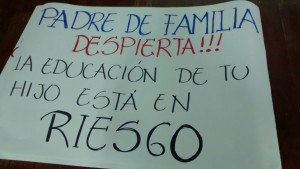 PADRE DE FAMILIA
DESPIERTA!!!
LA EDUCACIÓN DE TU
HIJO ESTÁ EN
RIESGO